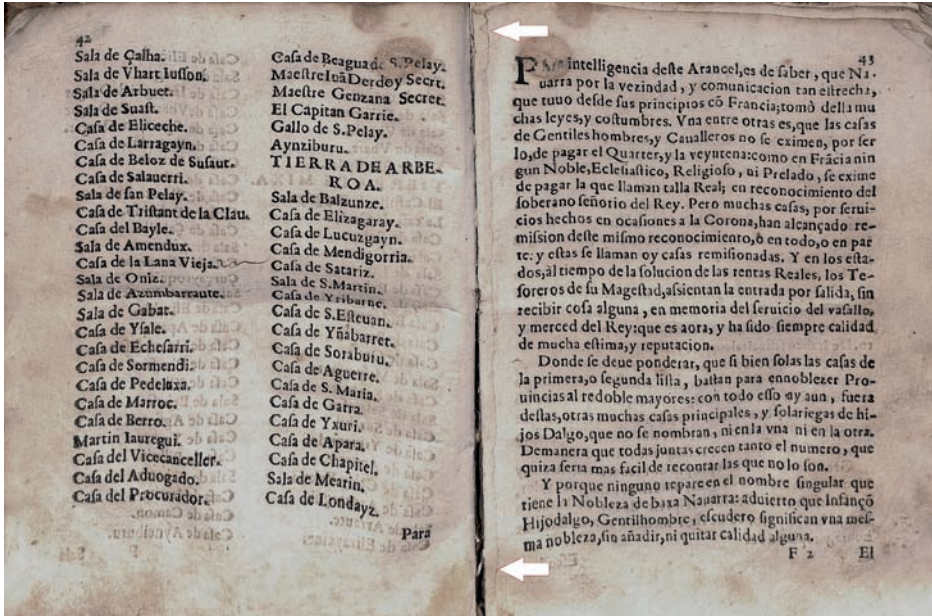 42
Sala de Çalha.
Sala de Vhart Iuſſon.
Sala de Arbuet.
Sala de Suaſt.
Caſa de Eliceche.
Caſa de Larragayn.
Caſa de Beloz de Suſaut.
Caſa de Salauerri.
Sala de ſan Pelay.
Caſa de Triſtant de la Clau.
Caſa del Bayle.
Sala de Amendux.
Caſa de la Lana Vieja.
Sala de Oniz.
Sala de Azumbarraute.
Sala de Gabat.
Caſa de Yſale.
Caſa de Echeſarri.
Caſa de Sormendi.
Caſa de Pedeluxa.
Caſa de Marroc.
Caſa de Berro.
Martin Iauregui.
Caſa del Vicecanceller.
Caſa del Aduogado.
Caſa del Procurador.
Caſa de Beagua de S. Pelay.
Maeſtre Iuã Derdoy Secrt.
Maeſtre Genzana Secret.
El Capitan Garrie.
Gallo de S. Pelay.
Aynziburu.
TIERRA DE ARBE-
ROA.
Sala de Balzunze.
Caſa de Elizagaray.
Caſa de Lucuzgayn.
Caſa de Mendigorria.
Caſa de Satariz.
Sala de S. Martin.
Caſa de Yribarne.
Caſa de S. Eſteuan.
Caſa de Yñabarret.
Caſa de Soraburu.
Caſa de Aguerre.
Caſa de S. Maria.
Caſa de Garra.
Caſa de Yxuri.
Caſa de Apara.
Caſa de Chapitel.
Sala de Mearin.
Caſa de Londayz.
Para
43
Para intelligencia deſte Arancel, es de ſaber, que Na-
uarra por la vezindad, y comunicacion tan eſtrecha,
que tuuo deſde ſus principios cõ Francia; tomò della mu
chas leyes, y coſtumbres. Vna entre otras es, que las caſas
de Gentiles hombres, y Caualleros no ſe eximen, por ſer
lo, de pagar el Quarter, y la veyntena: como en Frãcia nin
gun Noble, Ecleſiaſtico, Religioſo, ni Prelado, ſe exime
de pagar la que llaman talla Real; en reconocimiento del
ſoberano ſeñorio del Rey. Pero muchas caſas, por ſerui-
cios hechos en ocaſiones a la Corona, han alcançado re-
miſsion deſte miſmo reconocimiento, ò en todo, o en par
te: y eſtas ſe llaman oy caſas remiſionadas. Y en los eſta-
dos, al tiempo de la ſolucion de las rentas Reales, los Te-
ſoreros de ſu Mageſtad, aſsientan la entrada por ſalida, ſin
recibir coſa alguna, en memoria del ſeruicio del vaſallo,
y merced del Rey: que es aora, y ha ſido ſiempre calidad
de mucha eſtima, y reputacion.
Donde ſe deue ponderar, que ſi bien ſolas las caſas de
la primera, o ſegunda liſta, baſtan para ennoblezer Pro-
uincias al redoble mayores: con todo eſſo ay aun, fuera
deſtas, otras muchas caſas principales, y ſolariegas de hi-
jos Dalgo, que no ſe nombran, ni en la vna ni en la otra.
Demanera que todas juntas crecen tanto el numero, que
quiza ſeria mas facil de recontar las que no lo ſon.
Y porque ninguno repare en el nombre ſingular que
tiene la Nobleza de baxa Nauarra: aduierto que Infançõ
Hijodalgo, Gentilhombre, eſcudero ſignifican vna meſ-
ma nobleza, ſin añadir, ni quitar calidad alguna.
F 2 El